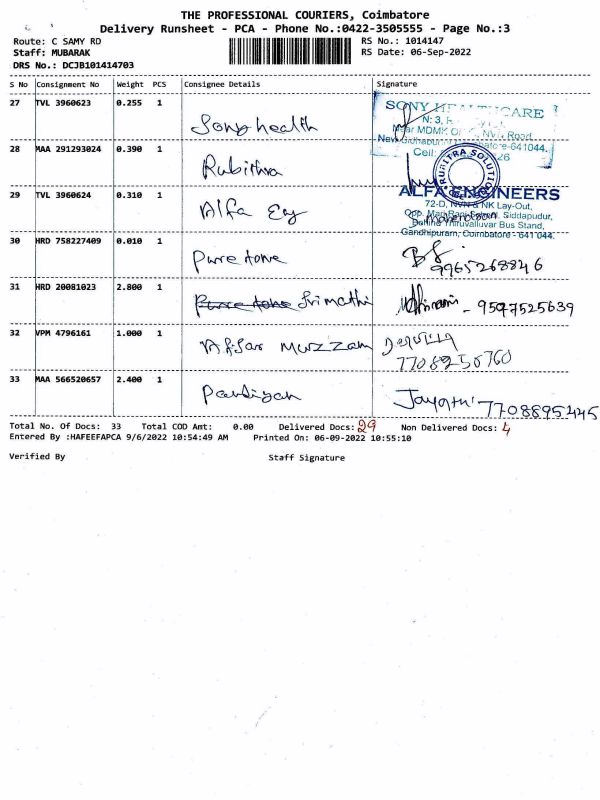 THE PROFESSIONAL COURIERS, Coimbatore
Delivery Runsheet - PCA - Phone No.:0422-3505555 - Page No.:3
Route: C SAMY RD RS No.: 1014147
Staff: MUBARAK RS Date: 06-Sep-2022
DRS No.: DCJB101414703
S No Consignment No Weight PCS Consignee Details Signature
27 TVL 3960623 0.255 1 Sony health
SONY HEALTHCARE
N: 3,
Near MDMK NVN Road,
641044.
Cell: 26
28 MAA 291293024 0.390 1 Rubithra
29 TVL 3960624 0.310 1 Alfa Eng
ALFA ENGINEERS
72-D, NVN & NK Lay-Out,
Opp. Mani Siddapudur,
Behind Thiruvalluvar Bus Stand,
Gandhipuram, Coimbatore - 641 044.
30 HRD 758227409 0.010 1 Puretone
9965268846
31 HRD 20081023 2.800 1 Puretone Srimathi
- 9597525639
32 VPM 4796161 1.000 1 Afsar Muzzam
7708956760
33 MAA 566520657 2.400 1 Pandiyan
7708895445
Total No. Of Docs: 33 Total COD Amt: 0.00 Delivered Docs: 29 Non Delivered Docs: 4
Entered By :HAFEEFAPCA 9/6/2022 10:54:49 AM Printed On: 06-09-2022 10:55:10
Verified By Staff Signature